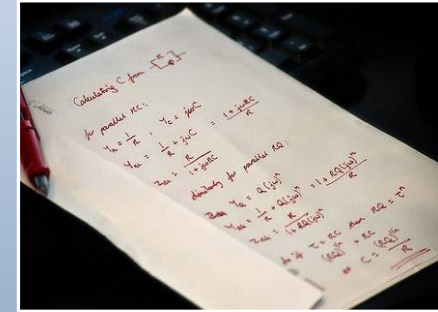 Calculating C from
for parallel RC:
Y_R = 1/R , Y_C = jωC
Y_RC = 1/R + jωC = (1 + jωRC)/R
Z_RC = R/(1 + jωRC)
similarly for parallel RQ:
Y_Q = Q(jω)^n
Y_RQ = 1/R + Q(jω)^n = (1 + RQ(jω)^n)/R
Z_RQ = R/(1 + RQ(jω)^n)
so if τ = RC then RQ = τ^n
(RQ)^1/n = RC
C = (RQ)^1/n/R